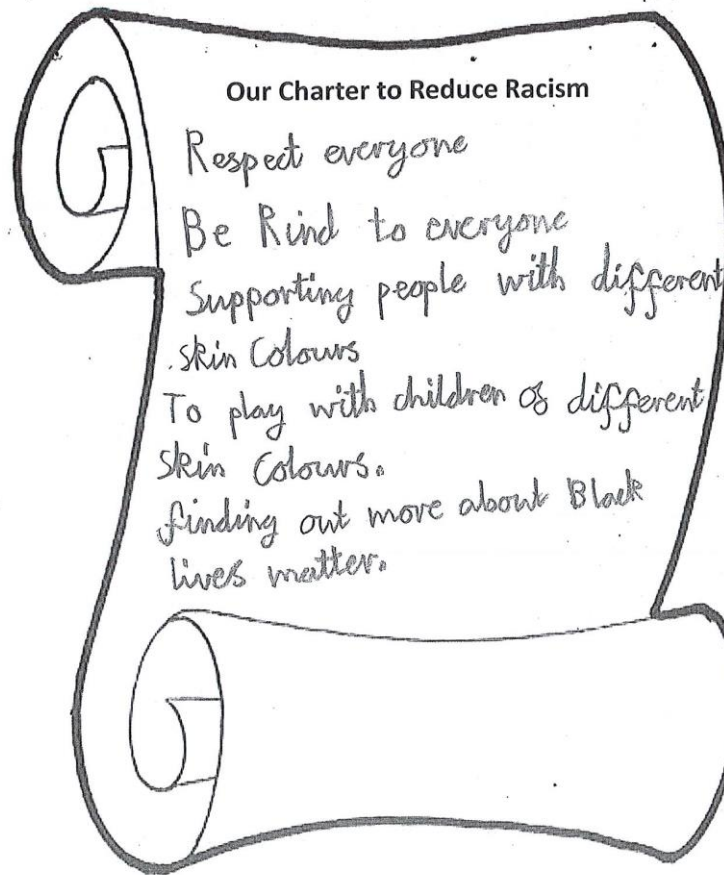 Our Charter to Reduce Racism
Respect everyone
Be Kind to everyone
Supporting people with different
skin Colours
To play with children of different
skin Colours.
finding out more about Black
lives matter.